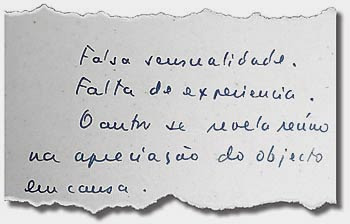 Falsa sensualidade.
Falta de experiencia.
O autor se revela neúno
na apreciação do objecto
em causa.